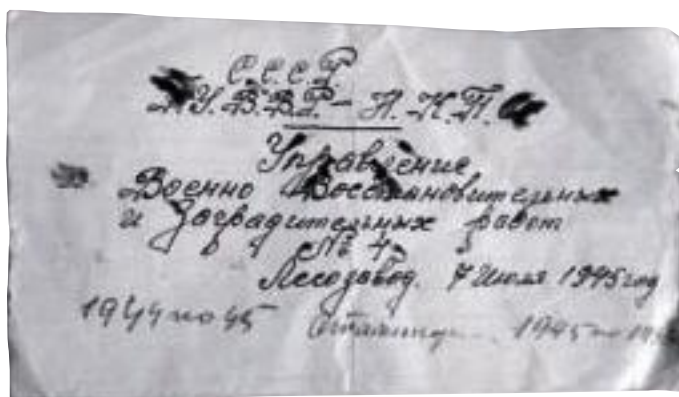 С.С.С.Р.
Г.У.В.В.Р. – Н.К.П.С.
Управление
Военно Восстановительных
и Заградительных работ
№ 4
Лесозавод. 7 Июля 1945 год
1944 по 45 1945